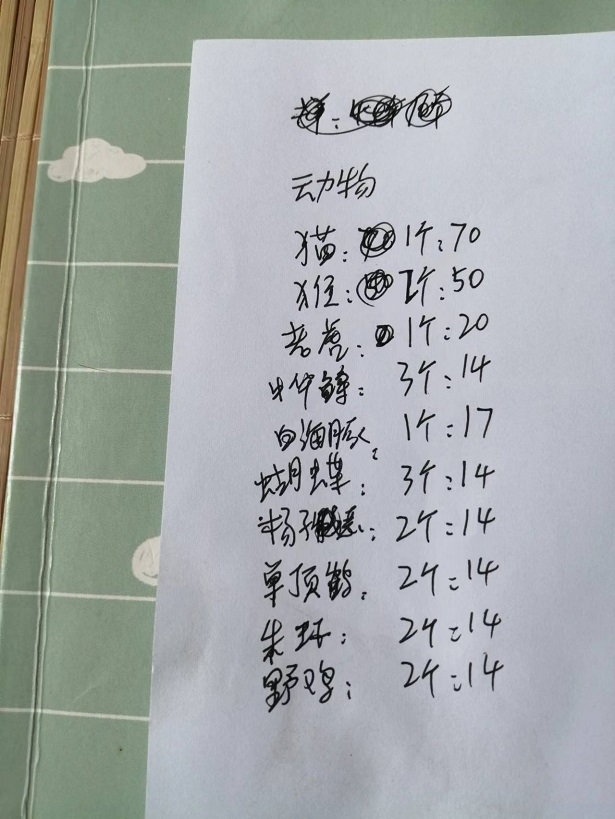 动物
猫: 1个:70
1个:50
老虎: 1个:20
中华鲟: 3个:14
白海豚: 1个:17
蝴蝶: 3个:14
扬子: 2个:14
单顶鹤: 2个:14
朱环: 2个:14
野鸡: 2个:14